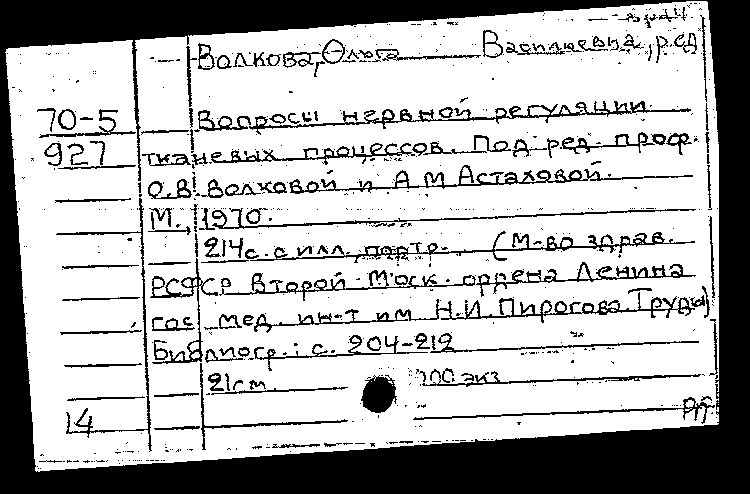 Волкова, Ольга Васильевна, ред
70-5 Вопросы нервной регуляции
927 тканевых процессов. Под ред. проф.
О.В. Волковой и А М Асталовой.
М., 1970.
214с. с илл., портр. (М-во здрав.
РСФСР Второй Моск. ордена Ленина
гос мед. ин-т им Н.И. Пирогова. Труды)
Библиогр.: с. 204-212
21см. 700 экз
14